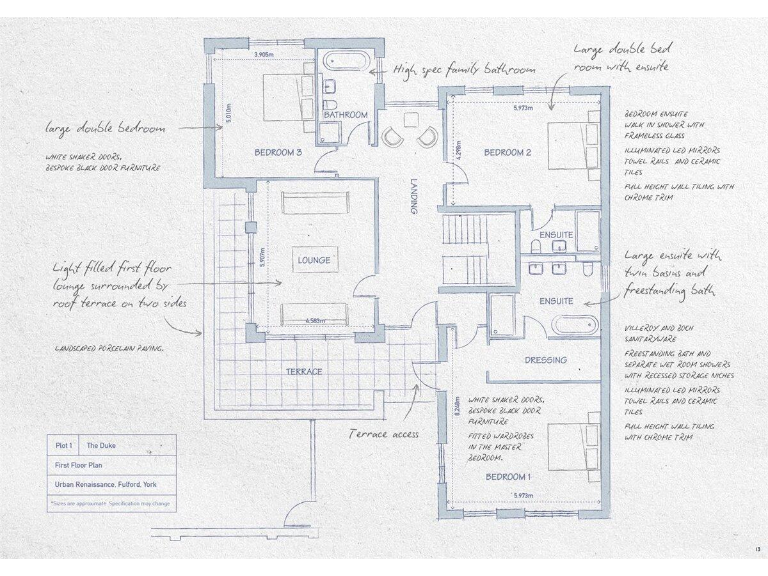 3.905m
5.010m
BATHROOM
BEDROOM 3
High spec family bathroom
Large double bed
room with ensuite
large double bedroom
WHITE SHAKER DOORS,
BESPOKE BLACK DOOR FURNITURE
5.973m
4.298m
BEDROOM 2
BEDROOM ENSUITE
WALK IN SHOWER WITH
FRAMELESS GLASS
ILLUMINATED LED MIRRORS
TOWEL RAILS AND CERAMIC
TILES
FULL HEIGHT WALL TILING WITH
CHROME TRIM
LANDING
LOUNGE
5.907m
4.583m
ENSUITE
ENSUITE
Light filled first floor
lounge surrounded by
roof terrace on two sides
LANDSCAPED PORCELAIN PAVING.
Large ensuite with
twin basins and
freestanding bath
VILLEROY AND BOCH
SANITARYWARE
FREESTANDING BATH AND
SEPARATE WET ROOM SHOWERS
WITH RECESSED STORAGE NICHES
ILLUMINATED LED MIRRORS
TOWEL RAILS AND CERAMIC
TILES
FULL HEIGHT WALL TILING
WITH CHROME TRIM
DRESSING
TERRACE
Terrace access
WHITE SHAKER DOORS,
BESPOKE BLACK DOOR
FURNITURE
FITTED WARDROBES
IN THE MASTER
BEDROOM.
8.248m
BEDROOM 1
5.973m
Plot 1 The Duke
First Floor Plan
Urban Renaissance, Fulford, York
*Sizes are approximate. Specification may change
13